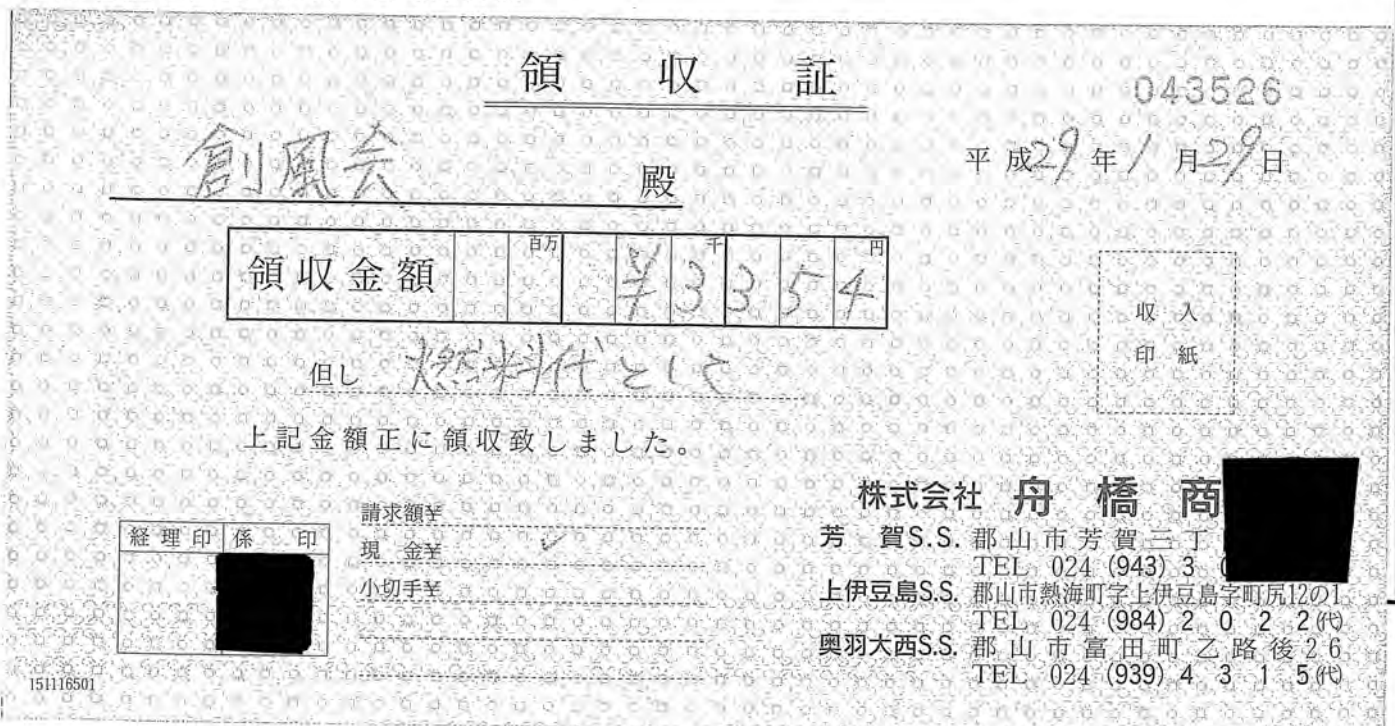 領収証
043526
創風会 殿
平成29年1月29日
領収金額 百万 千 円
¥3354
但し 燃料代として
収入
印紙
上記金額正に領収致しました。
請求額¥
現金¥ ✓
小切手¥
経理印 係印
株式会社 舟橋商
芳賀S.S. 郡山市芳賀三丁
TEL 024 (943) 3
上伊豆島S.S. 郡山市熱海町字上伊豆島字町尻12の1
TEL 024 (984) 2022㈹
奥羽大西S.S. 郡山市富田町乙路後26
TEL 024 (939) 4315㈹
151116501